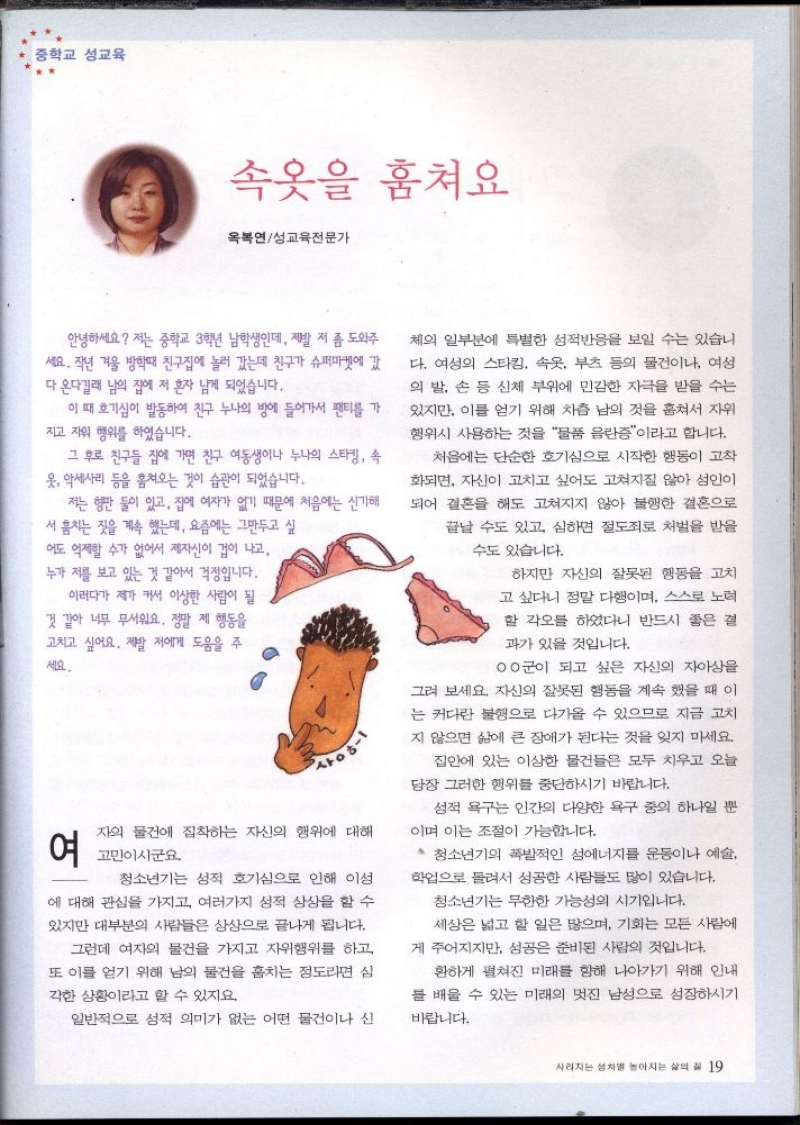 중학교 성교육
속옷을 훔쳐요
옥복연/성교육전문가
안녕하세요? 저는 중학교 3학년 남학생인데, 제발 저 좀 도와주
세요. 작년 겨울 방학때 친구집에 놀러 갔는데 친구가 슈퍼마켓에 갔
다 온다길래 남의 집에 저 혼자 남게 되었습니다.
이 때 호기심이 발동하여 친구 누나의 방에 들어가서 팬티를 가
지고 자위 행위를 하였습니다.
그 후로 친구들 집에 가면 친구 여동생이나 누나의 스타킹, 속
옷, 악세사리 등을 훔쳐오는 것이 습관이 되었습니다.
저는 형만 둘이 있고, 집에 여자가 없기 때문에 처음에는 신기해
서 훔치는 짓을 계속 했는데, 요즘에는 그만두고 싶
어도 억제할 수가 없어서 제자신이 겁이 나고,
누가 저를 보고 있는 것 같아서 걱정입니다.
이러다가 제가 커서 이상한 사람이 될
것 같아 너무 무서워요. 정말 제 행동을
고치고 싶어요. 제발 저에게 도움을 주
세요.
사이하-!
여자의 물건에 집착하는 자신의 행위에 대해
고민이시군요.
청소년기는 성적 호기심으로 인해 이성
에 대해 관심을 가지고, 여러가지 성적 상상을 할 수
있지만 대부분의 사람들은 상상으로 끝나게 됩니다.
그런데 여자의 물건을 가지고 자위행위를 하고,
또 이를 얻기 위해 남의 물건을 훔치는 정도라면 심
각한 상황이라고 할 수 있지요.
일반적으로 성적 의미가 없는 어떤 물건이나 신
체의 일부분에 특별한 성적반응을 보일 수는 있습니
다. 여성의 스타킹, 속옷, 부츠 등의 물건이나, 여성
의 발, 손 등 신체 부위에 민감한 자극을 받을 수는
있지만, 이를 얻기 위해 차츰 남의 것을 훔쳐서 자위
행위시 사용하는 것을 "물품 음란증"이라고 합니다.
처음에는 단순한 호기심으로 시작한 행동이 고착
화되면, 자신이 고치고 싶어도 고쳐지질 않아 성인이
되어 결혼을 해도 고쳐지지 않아 불행한 결혼으로
끝날 수도 있고, 심하면 절도죄로 처벌을 받을
수도 있습니다.
하지만 자신의 잘못된 행동을 고치
고 싶다니 정말 다행이며, 스스로 노력
할 각오를 하였다니 반드시 좋은 결
과가 있을 것입니다.
○○군이 되고 싶은 자신의 자아상을
그려 보세요. 자신의 잘못된 행동을 계속 했을 때 이
는 커다란 불행으로 다가올 수 있으므로 지금 고치
지 않으면 삶에 큰 장애가 된다는 것을 잊지 마세요.
집안에 있는 이상한 물건들은 모두 치우고 오늘
당장 그러한 행위를 중단하시기 바랍니다.
성적 욕구는 인간의 다양한 욕구 중의 하나일 뿐
이며 이는 조절이 가능합니다.
청소년기의 폭발적인 성에너지를 운동이나 예술,
학업으로 돌려서 성공한 사람들도 많이 있습니다.
청소년기는 무한한 가능성의 시기입니다.
세상은 넓고 할 일은 많으며, 기회는 모든 사람에
게 주어지지만, 성공은 준비된 사람의 것입니다.
환하게 펼쳐진 미래를 향해 나아가기 위해 인내
를 배울 수 있는 미래의 멋진 남성으로 성장하시기
바랍니다.
사라지는 성차별 높아지는 삶의 질 19